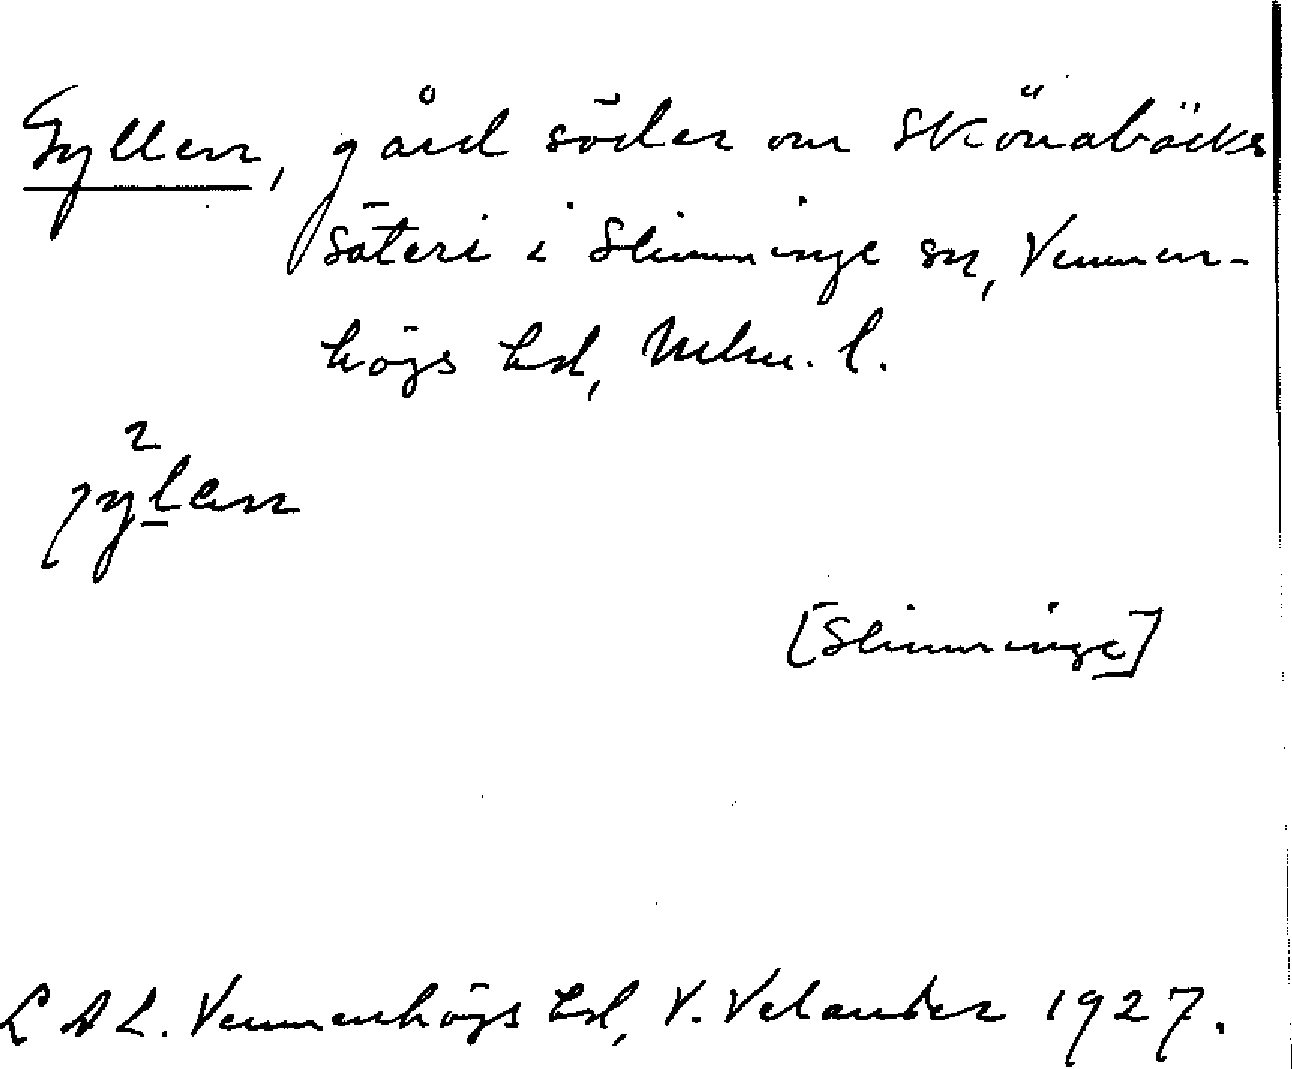 Gyllen, gård söder om Skönabäcks
säteri i Slimminge sn, Vemmen-
högs hd, Mlm. l.
2
jylen
[Slimminge]
LAL. Vemmenhögs hd, V. Velander 1927.